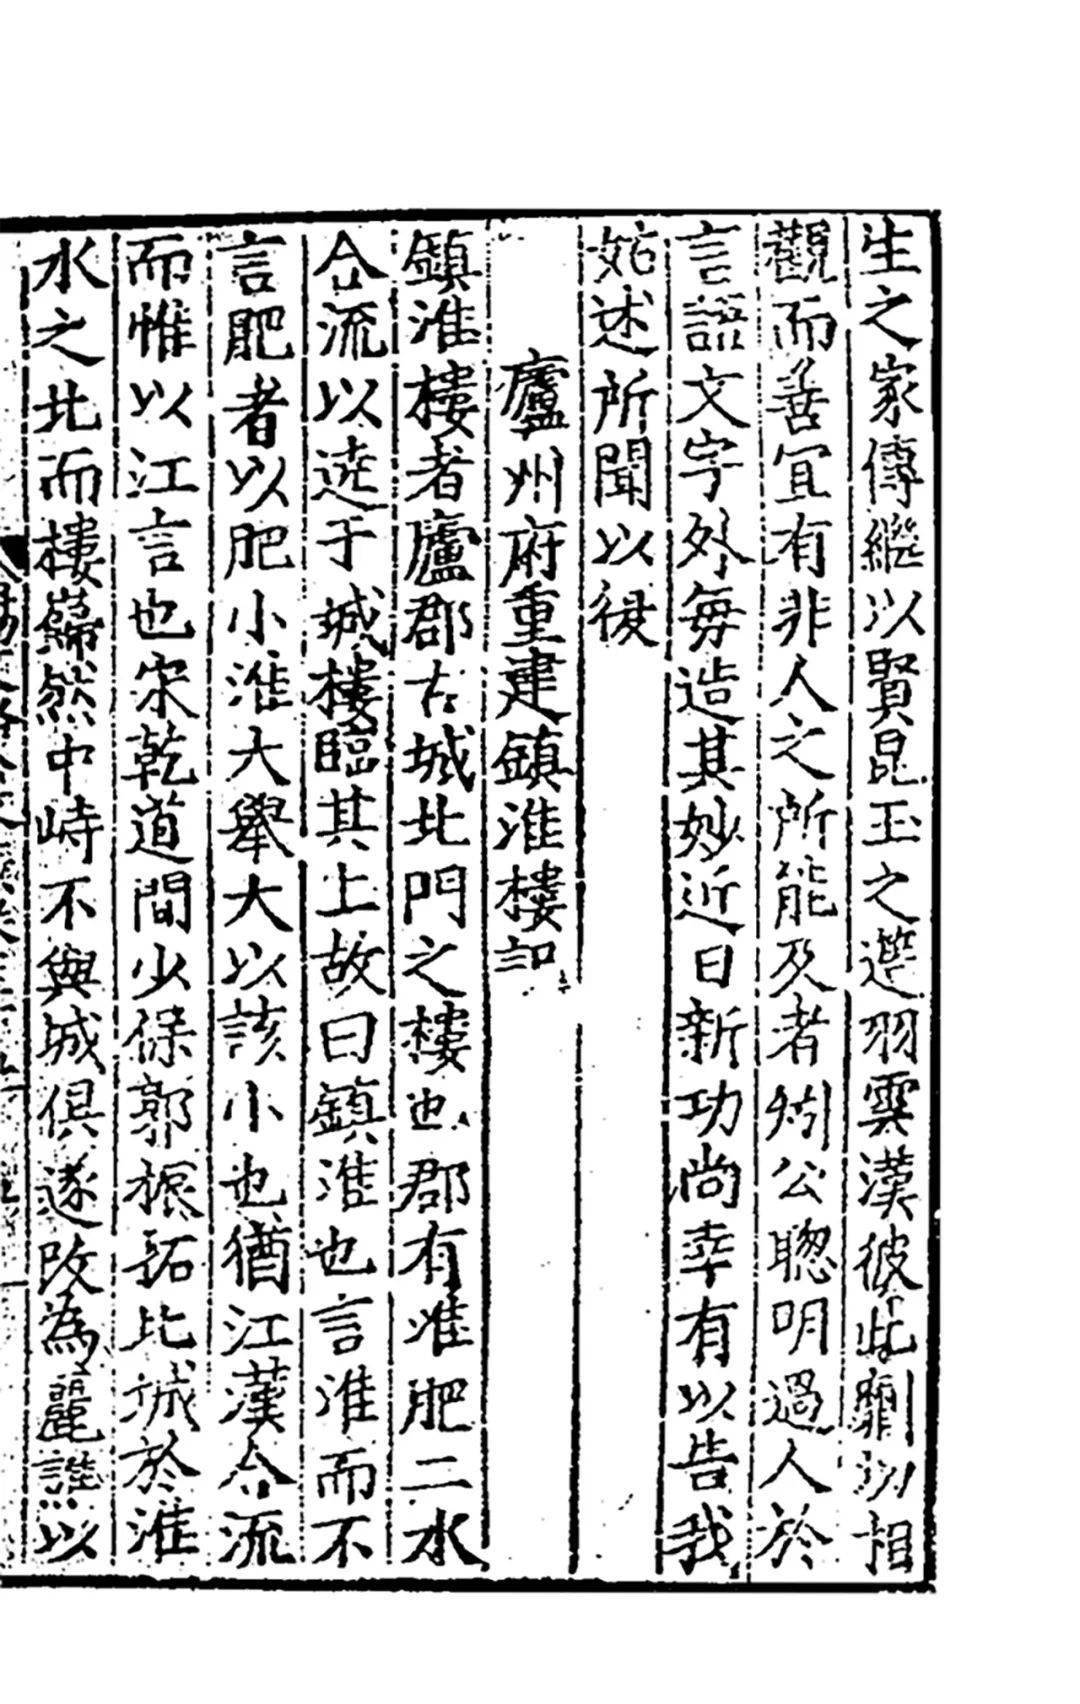 生之家傳繼以賢昆玉之選羽雲漢彼此劘切相
觀而善宜有非人之所能及者矧公聰明過人於
言語文字外每造其妙近日新功尚幸有以告我
姑述所聞以復
廬州府重建鎮淮樓記
鎮淮樓者廬郡古城北門之樓也郡有淮肥二水
合流以遶于城樓臨其上故曰鎮淮也言淮而不
言肥者以肥小淮大舉大以該小也猶江漢合流
而惟以江言也宋乾道間少保郭振拓北城於淮
水之北而樓巋然中峙不與城俱遂改為麗譙以